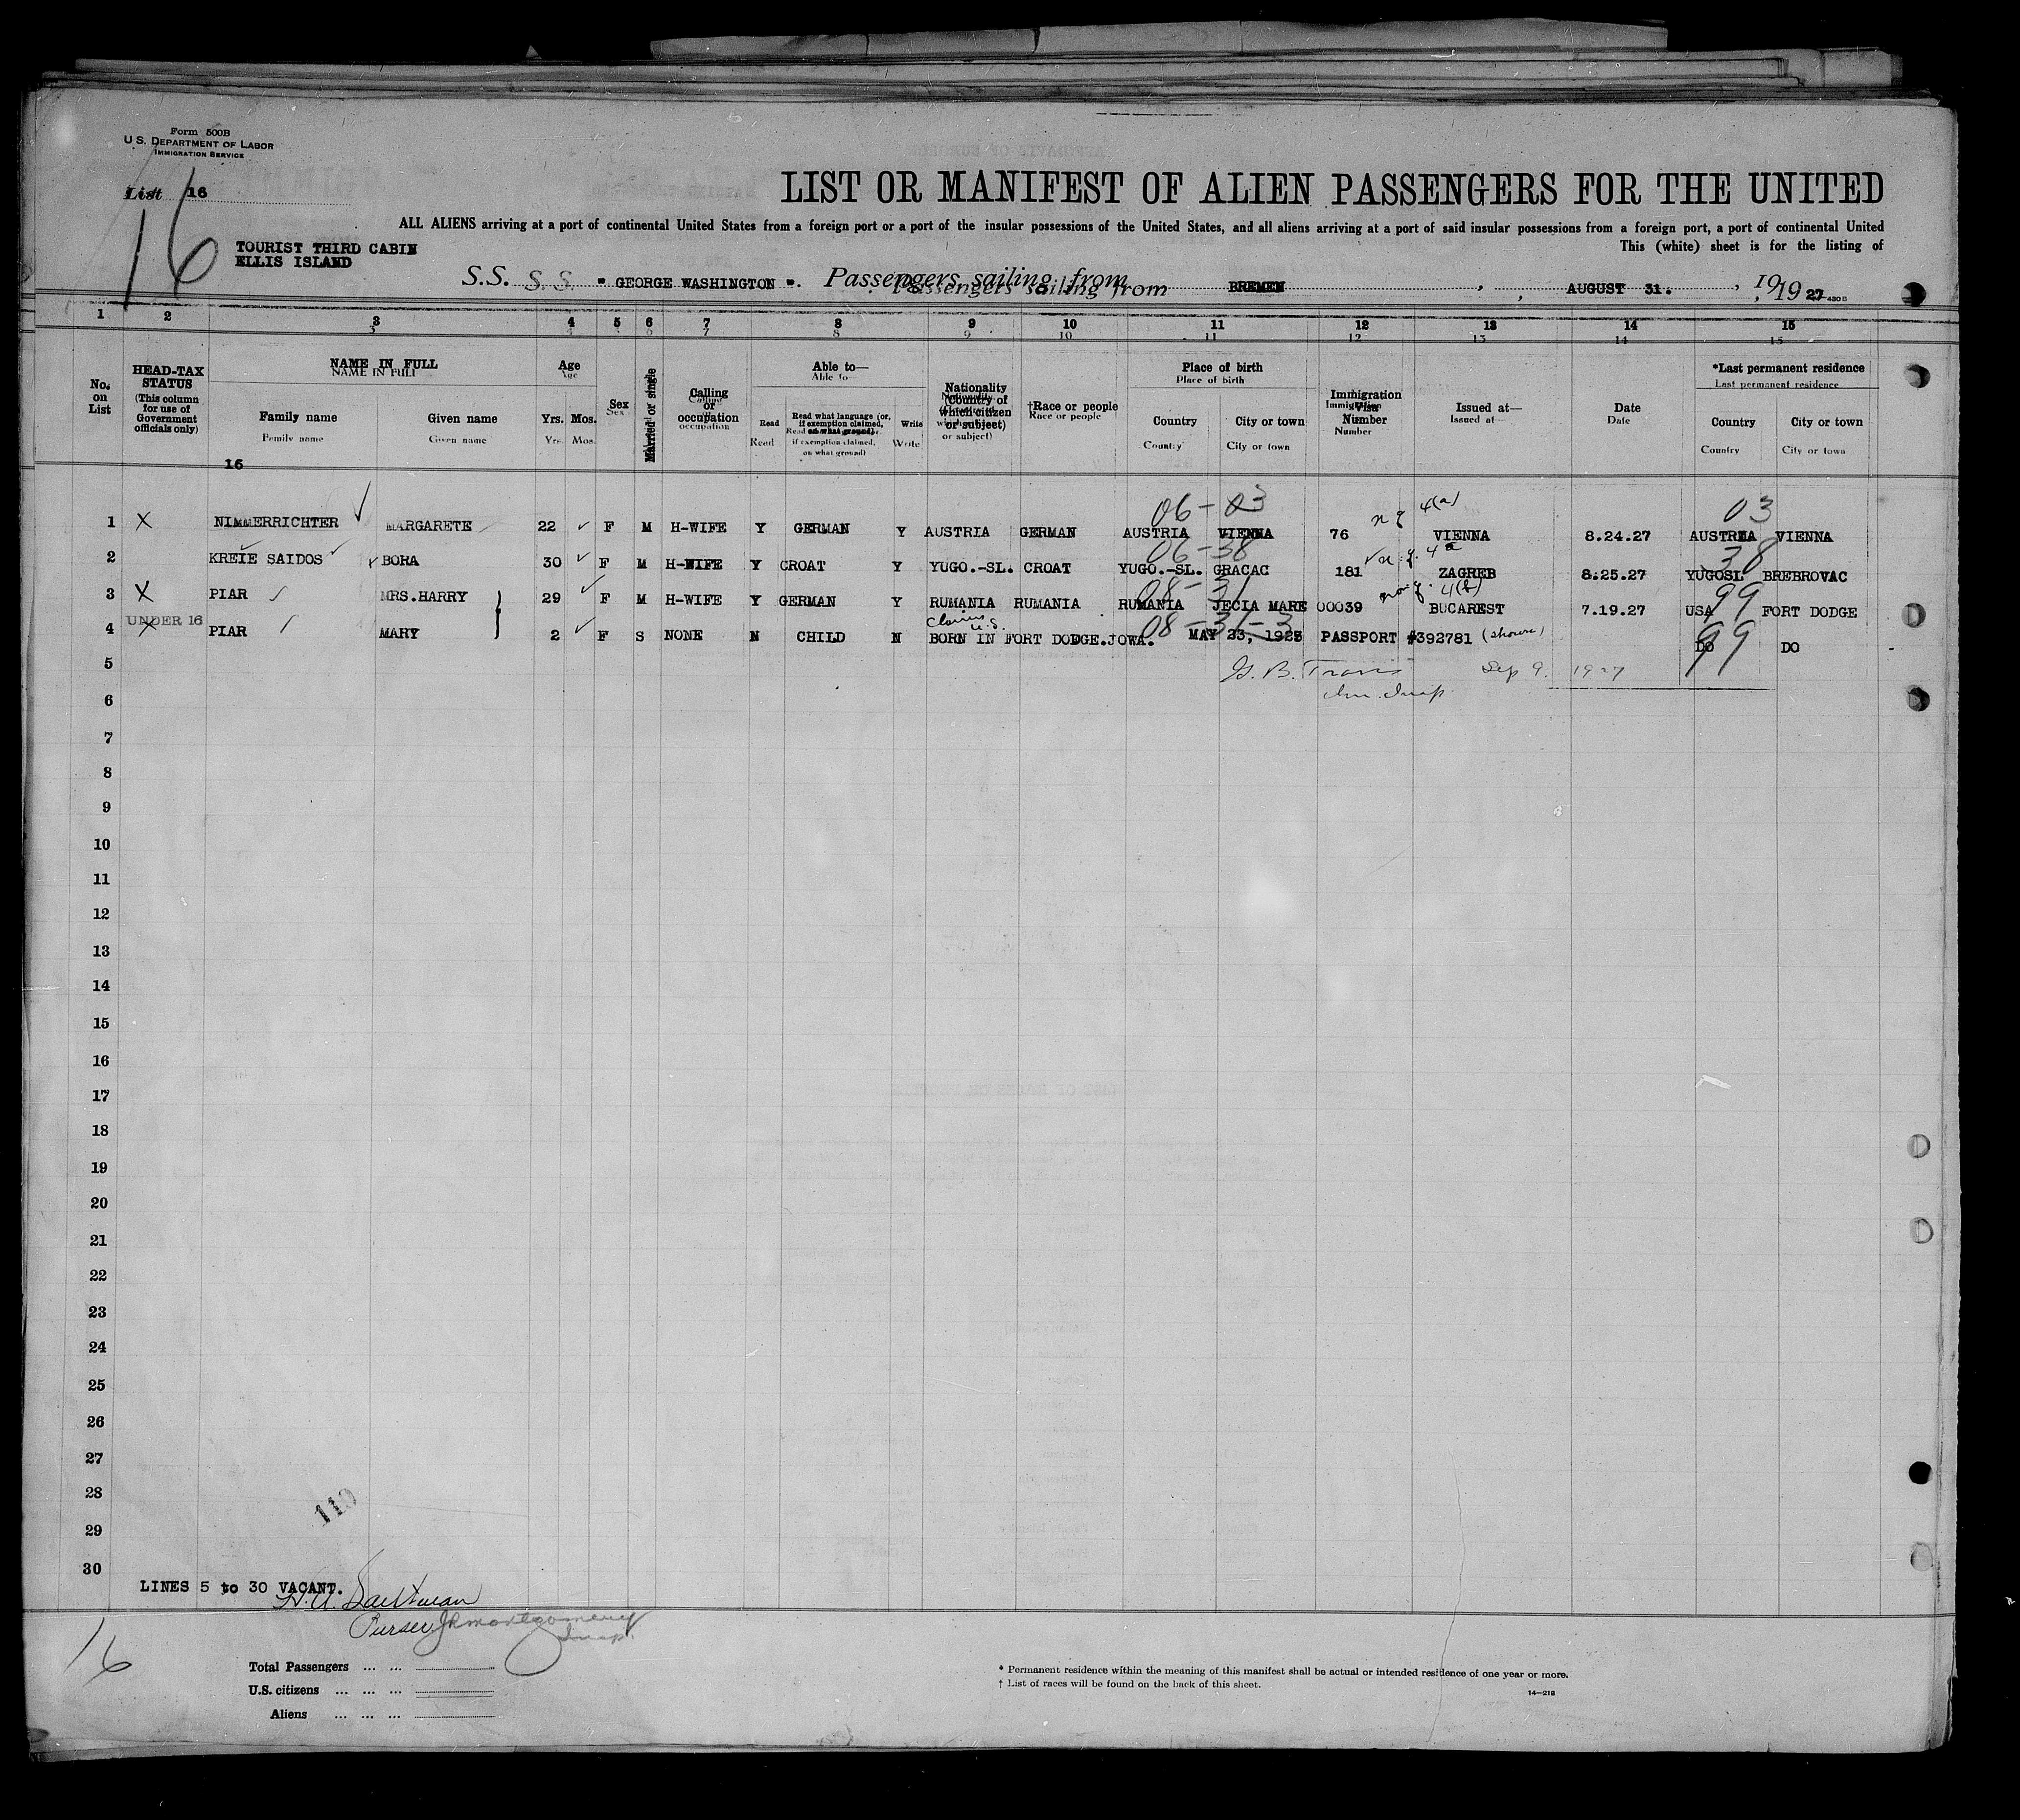 Form 500B
U. S. DEPARTMENT OF LABOR
IMMIGRATION SERVICE
List 16
16
LIST OR MANIFEST OF ALIEN PASSENGERS FOR THE UNITED
ALL ALIENS arriving at a port of continental United States from a foreign port or a port of the insular possessions of the United States, and all aliens arriving at a port of said insular possessions from a foreign port, a port of continental United
This (white) sheet is for the listing of
TOURIST THIRD CABIN
ELLIS ISLAND
S.S. S.S. " GEORGE WASHINGTON ". Passengers sailing from BREMEN, AUGUST 31., 1927
1 2 3 4 5 6 7 8 9 10 11 12 13 14 15
No. on List
HEAD-TAX STATUS (This column for use of Government officials only)
NAME IN FULL Family name Given name
Age Yrs. Mos.
Sex
Married or single
Calling or occupation
Able to— Read Read what language (or, if exemption claimed, on what ground) Write
Nationality (Country of which citizen or subject)
†Race or people
Place of birth Country City or town
Immigration Visa Number
Issued at—
Date
*Last permanent residence Country City or town
16
06-03 4(a) 03
1 X NIMMERRICHTER MARGARETE 22 F M H-WIFE Y GERMAN Y AUSTRIA GERMAN AUSTRIA VIENNA 76 VIENNA 8.24.27 AUSTRIA VIENNA
06-38 38
2 KREIE SAIDOS BORA 30 F M H-WIFE Y CROAT Y YUGO.-SL. CROAT YUGO.-SL. GRACAC 181 ZAGREB 8.25.27 YUGOSL BREBROVAC
08-31 4(b) 99
3 X PIAR MRS.HARRY 29 F M H-WIFE Y GERMAN Y RUMANIA RUMANIA RUMANIA JECIA MARE 00039 BUCAREST 7.19.27 USA FORT DODGE
UNDER 16 Claims U.S. 08-31-3 99
4 X PIAR MARY 2 F S NONE N CHILD N BORN IN FORT DODGE.IOWA. MAY 23, 1925 PASSPORT #392781 (shown) DO DO
5 G. B. Travis Sep 9. 1927
Imm. Insp.
6
7
8
9
10
11
12
13
14
15
16
17
18
19
20
21
22
23
24
25
26
27
28
29
30
110
LINES 5 to 30 VACANT.
Purser JRMontgomery
Insp.
16
Total Passengers ... ...
U.S. citizens ... ... ...
Aliens ... ... ...
* Permanent residence within the meaning of this manifest shall be actual or intended residence of one year or more.
† List of races will be found on the back of this sheet.
14—218